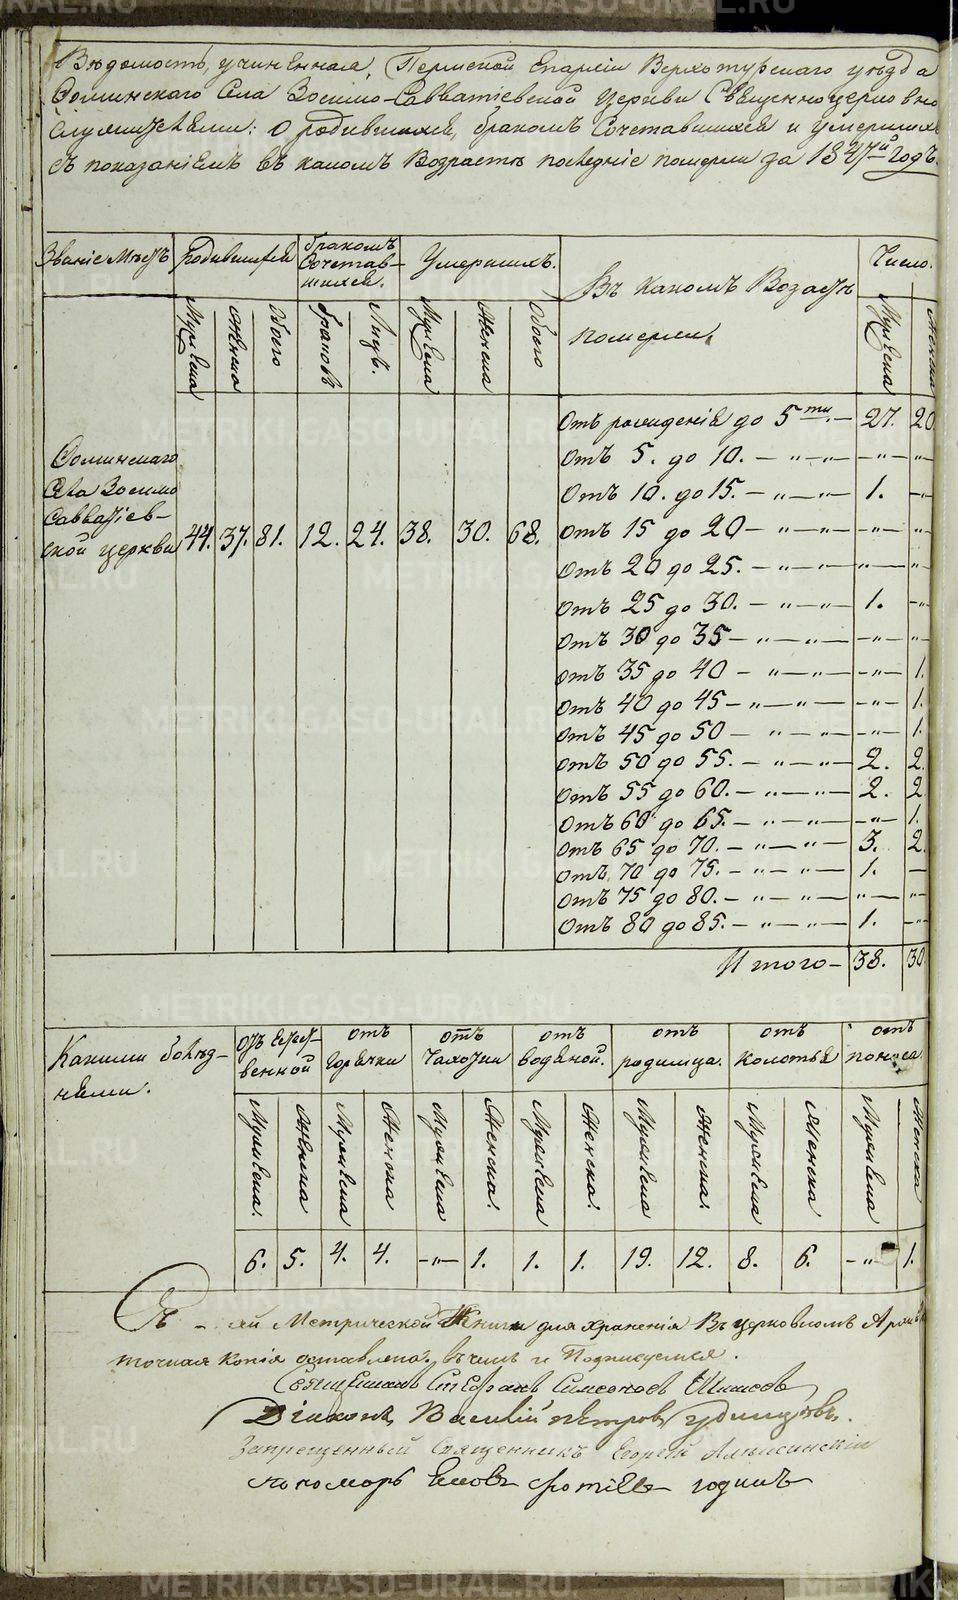 Вѣдомость, учиненная, Пермской Епархіи Верхотурскаго уѣзда
Фоминскаго Села Зосимо-Савватіевской Церкви Священноцерковно
служителями: о родившихся, бракомъ Сочетавшихся и умершихъ
съ показаніемъ въ какомъ Возрастѣ послѣдніе померли за 1847й Годъ.
Званіе Мѣстъ
родившихся
бракомъ
Сочетав-
шихся.
Умершихъ.
Въ какомъ Возастѣ
померли
Число.
Мужеска
Женска
Обоего
браковъ
Лицъ.
Мужеска
Женска
Обоего
Мужеска
Женска
Фоминскаго
Села Зосимо
Савватіев-
ской церкви
44. 37. 81. 12. 24. 38. 30. 68.
Отъ рожденія до 5ти. — 27. 20.
Отъ 5. до 10. — „ — „ — — „ — „
Отъ 10. до 15. — „ — „ — 1. — „
Отъ 15 до 20 — „ — „ — — „ — „
Отъ 20 до 25. — „ — „ — „ — „
Отъ 25 до 30. — „ — „ — 1. — „
Отъ 30 до 35 — „ — „ — — „ — „
Отъ 35 до 40 — „ — „ — — „ — 1.
Отъ 40 до 45 — „ — „ — — „ — 1.
Отъ 45 до 50 — „ — „ — — „ — 1.
Отъ 50 до 55. — „ — „ — 2. 2.
Отъ 55 до 60. — „ — „ — 2. 2.
Отъ 60 до 65. — „ — „ — — „ — 1.
Отъ 65 до 70. — „ — „ — 3. 2.
Отъ 70 до 75. — „ — „ — 1. —
Отъ 75 до 80. — „ — „ — „ — „
Отъ 80 до 85. — „ — „ — 1. — „
Итого — 38. 30.
Какими болѣз-
нями.
отъ Естест-
венной
отъ
Горячки
отъ
Чахотки
отъ
водяной.
отъ
родимца.
отъ
колотья
отъ
поноса
Мужеска. Женска Мужеска Женска Мужеска Женска. Мужеска Женска. Мужеска Женска. Мужеска Женска Мужеска Женска
6. 5. 4. 4. — „ — 1. 1. 1. 19. 12. 8. 6. — „ 1.
Съ — сей Метрической Книги для храненія Въ церковномъ Архивѣ
точная Копія оставлена. въ чемъ и Подписуемся.
Священникъ Стефанъ Симеоновъ Шишовъ
Діаконъ Василій Петровъ Удинцовъ.
Запрещенный Священникъ Георгій
Пономарь годинъ
METRIKI.GASO-URAL.RU